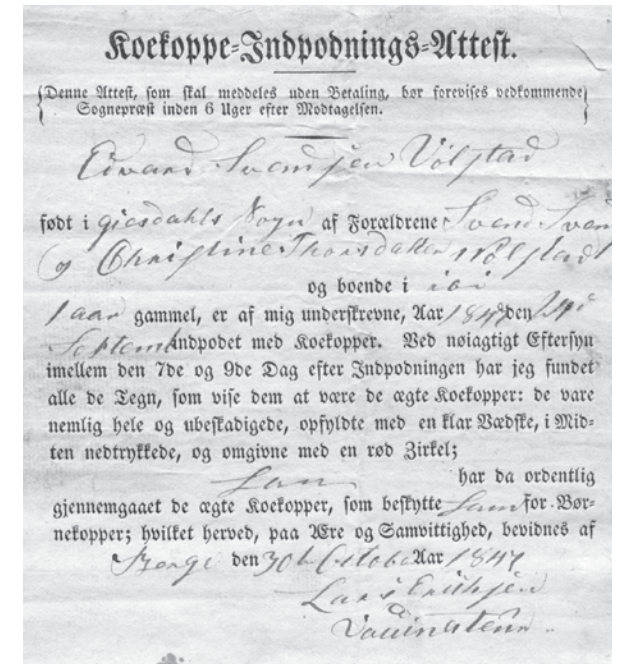 Koekoppe-Indpodnings-Attest.
(Denne Attest, som skal meddeles uden Betaling, bør forevises vedkommende
Sognepræst inden 6 Uger efter Modtagelsen.)
Edvard Svendsen Vølstad
født i Giesdahls Sogn af Forældrene Svend Svend
og Christine Thorsdatter Vølstad
og boende i ibi
1 aar gammel, er af mig underskrevne, Aar 1847 den
Septemb indpodet med Koekopper. Ved nøiagtigt Eftersyn
imellem den 7de og 9de Dag efter Indpodningen har jeg fundet
alle de Tegn, som vise dem at være de ægte Koekopper: de vare
nemlig hele og ubeskadigede, opfyldte med en klar Vædske, i Mid-
ten nedtrykkede, og omgivne med en rød Zirkel;
han har da ordentlig
gjennemgaaet de ægte Koekopper, som beskytte ham for Bør-
nekopper; hvilket herved, paa Ære og Samvittighed, bevidnes af
den 30 Octobe Aar 1847
Lars Erichsen
Vaccinateur